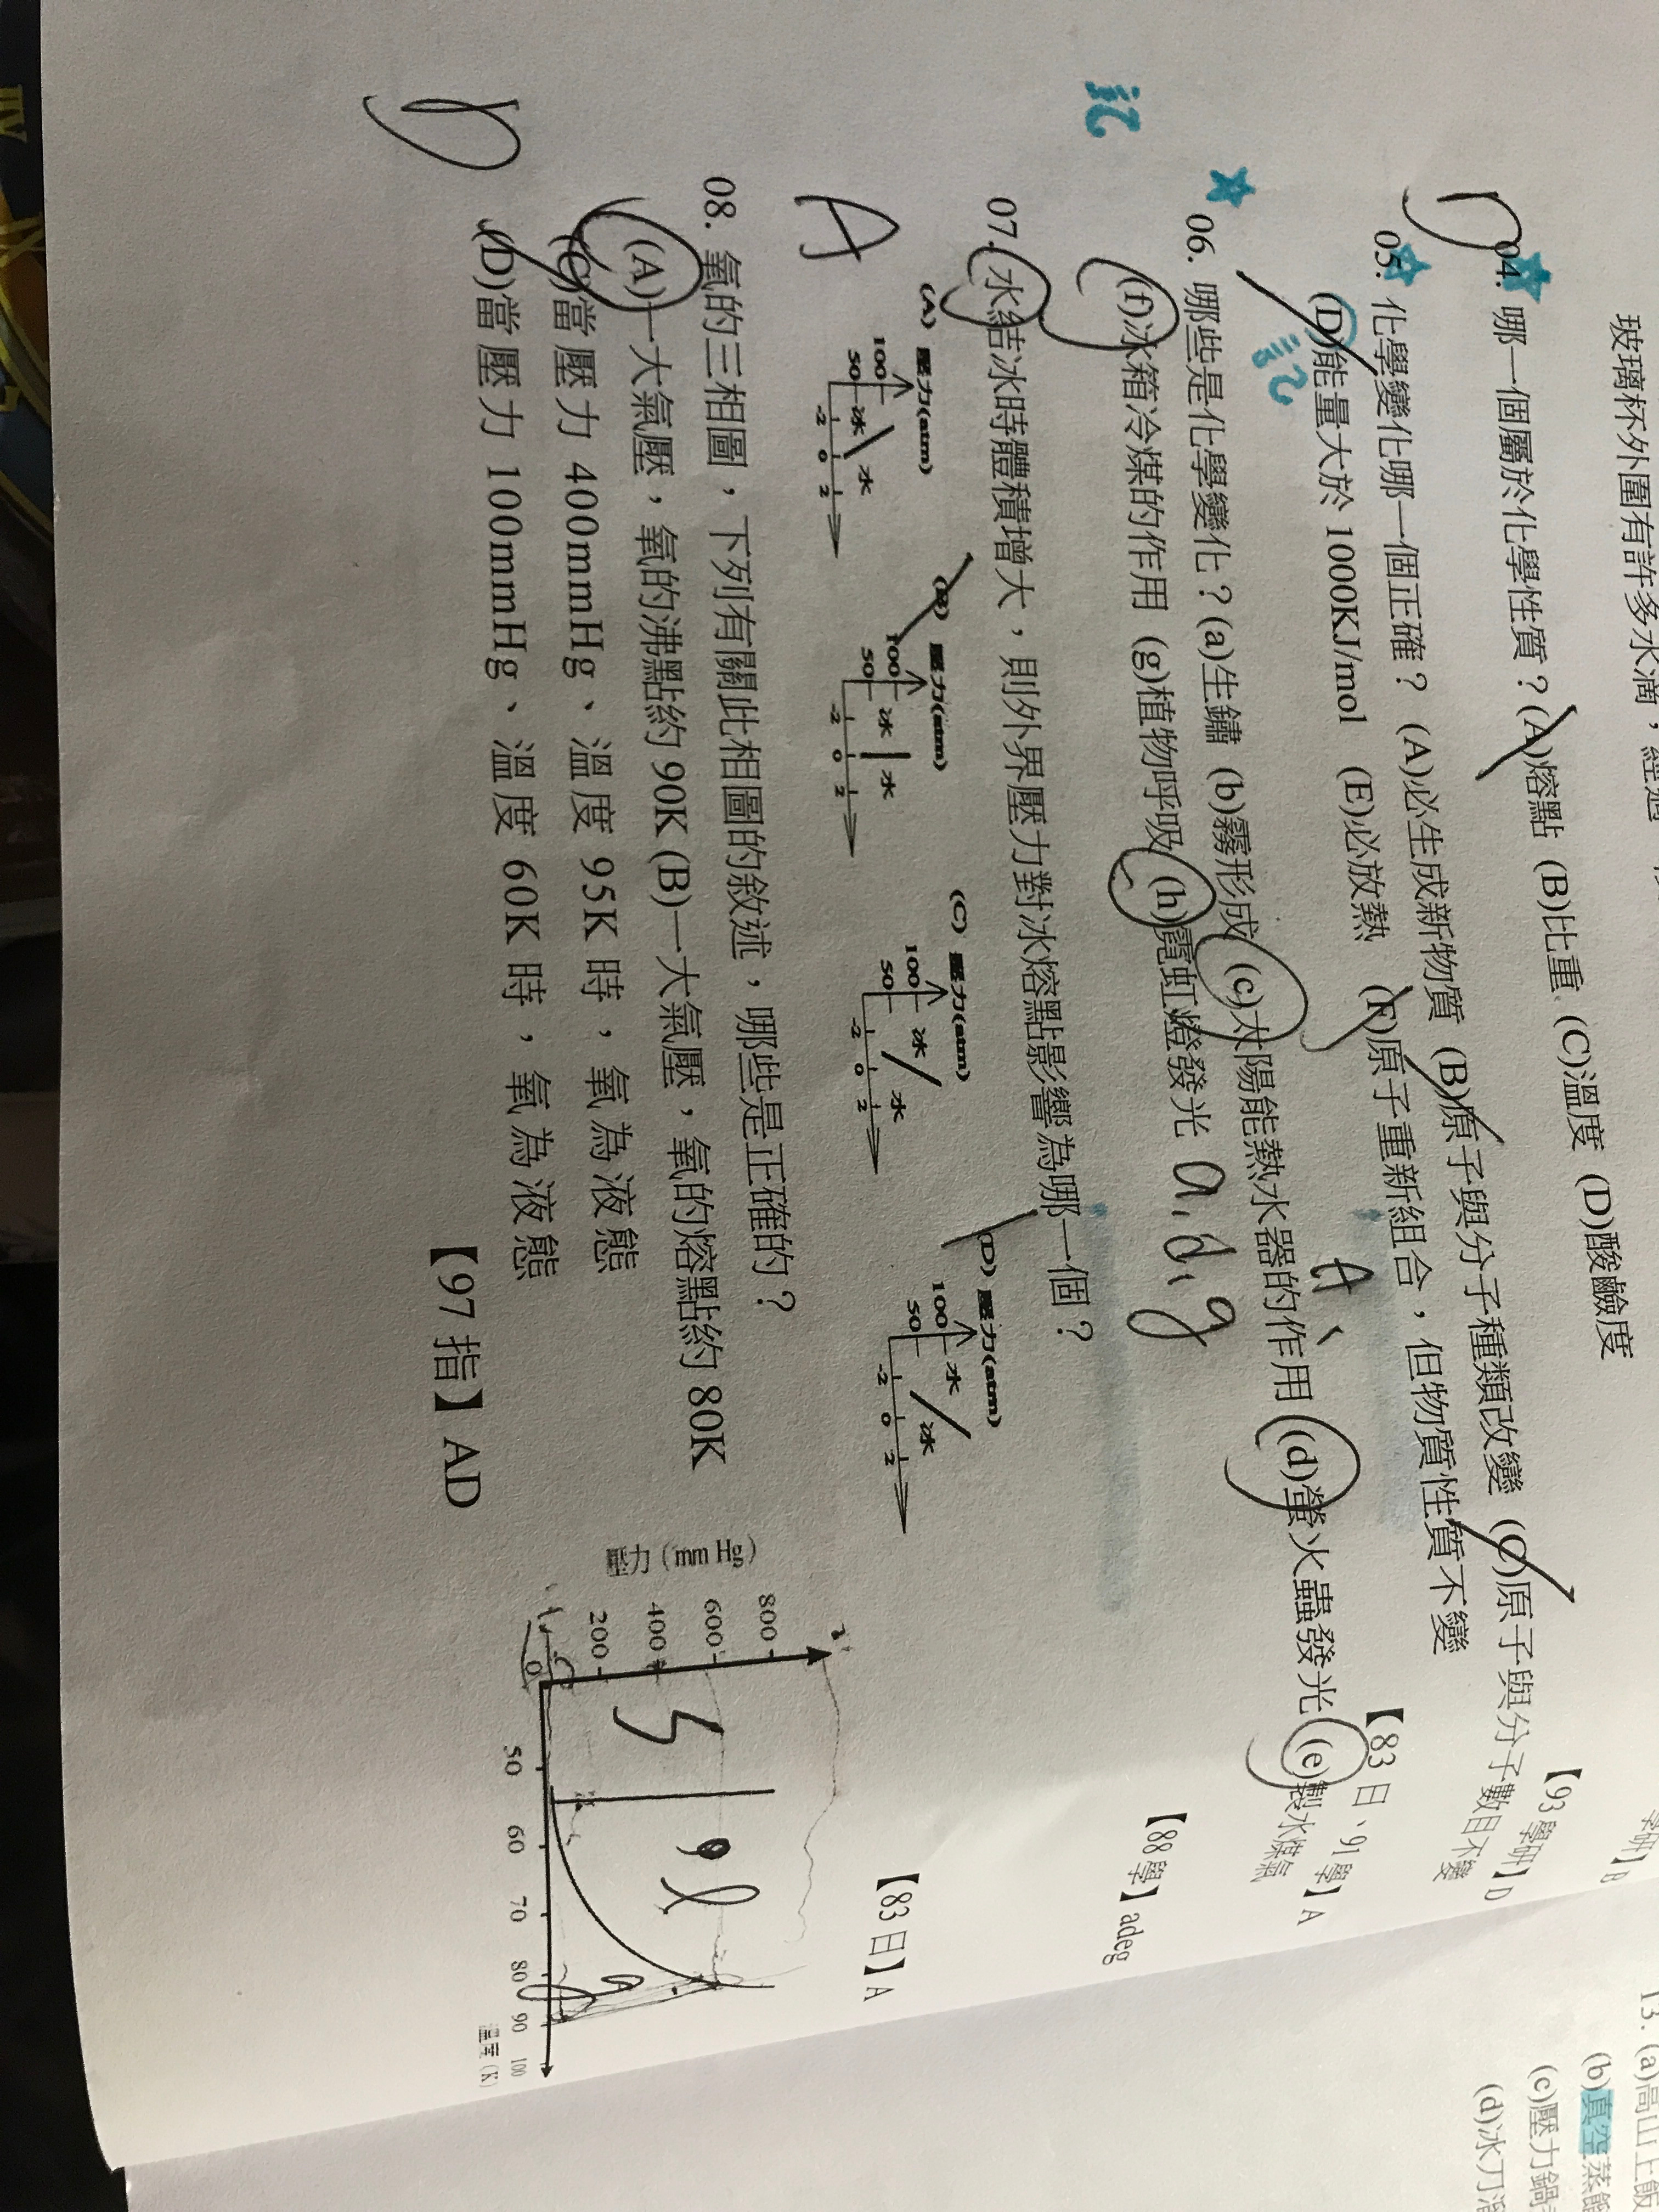 玻璃杯外圍有許多水滴，經過
04. 哪一個屬於化學性質？(A)熔點 (B)比重 (C)溫度 (D)酸鹼度
【93 學研】D
05. 化學變化哪一個正確？ (A)必生成新物質 (B)原子與分子種類改變 (C)原子與分子數目不變
(D)能量大於 1000KJ/mol (E)必放熱 (F)原子重新組合，但物質性質不變
A、
【83 日、91 學】A
記
06. 哪些是化學變化？(a)生鏽 (b)霧形成 (c)太陽能熱水器的作用 (d)螢火蟲發光 (e)製水煤氣
(f)冰箱冷媒的作用 (g)植物呼吸 (h)霓虹燈發光 a,d,g
【88 學】adeg
記
07. 水結冰時體積增大，則外界壓力對冰熔點影響為哪一個？
(A) 壓力(atm) 100 50 冰 水 -2 0 2
(B) 壓力(atm) 100 50 冰 水 -2 0 2
(C) 壓力(atm) 100 50 冰 水 -2 0 2
(D) 壓力(atm) 100 50 水 冰 -2 0 2
A
【83 日】A
08. 氧的三相圖，下列有關此相圖的敘述，哪些是正確的？
(A)一大氣壓，氧的沸點約 90K (B)一大氣壓，氧的熔點約 80K
(C)當壓力 400mmHg、溫度 95K 時，氧為液態
(D)當壓力 100mmHg、溫度 60K 時，氧為液態
【97 指】AD
壓力 (mm Hg)
800
600
400
200
0
50 60 70 80 90 100
溫度 (K)
S
l
13. (a)高山上飯
(b)真空蒸餾
(c)壓力鍋
(d)冰刀